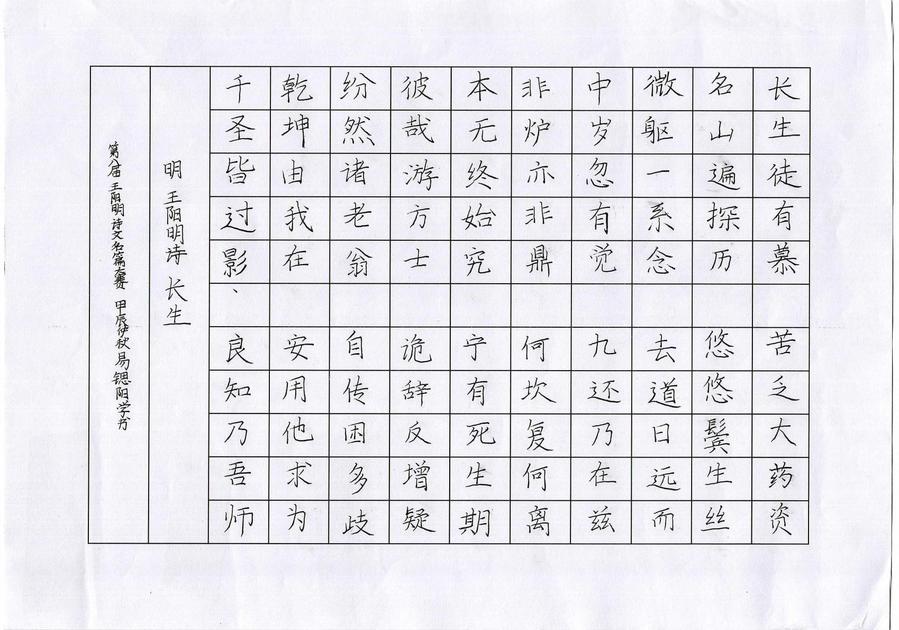 长生徒有慕 苦乏大药资
名山遍探历 悠悠鬓生丝
微躯一系念 去道日远而
中岁忽有觉 九还乃在兹
非炉亦非鼎 何坎复何离
本无终始究 宁有死生期
彼哉游方士 诡辞反增疑
纷然诸老翁 自传困多歧
乾坤由我在 安用他求为
千圣皆过影、良知乃吾师
明 王阳明诗 长生
第八届王阳明诗文名篇大赛 甲辰仲秋易锶阳学书